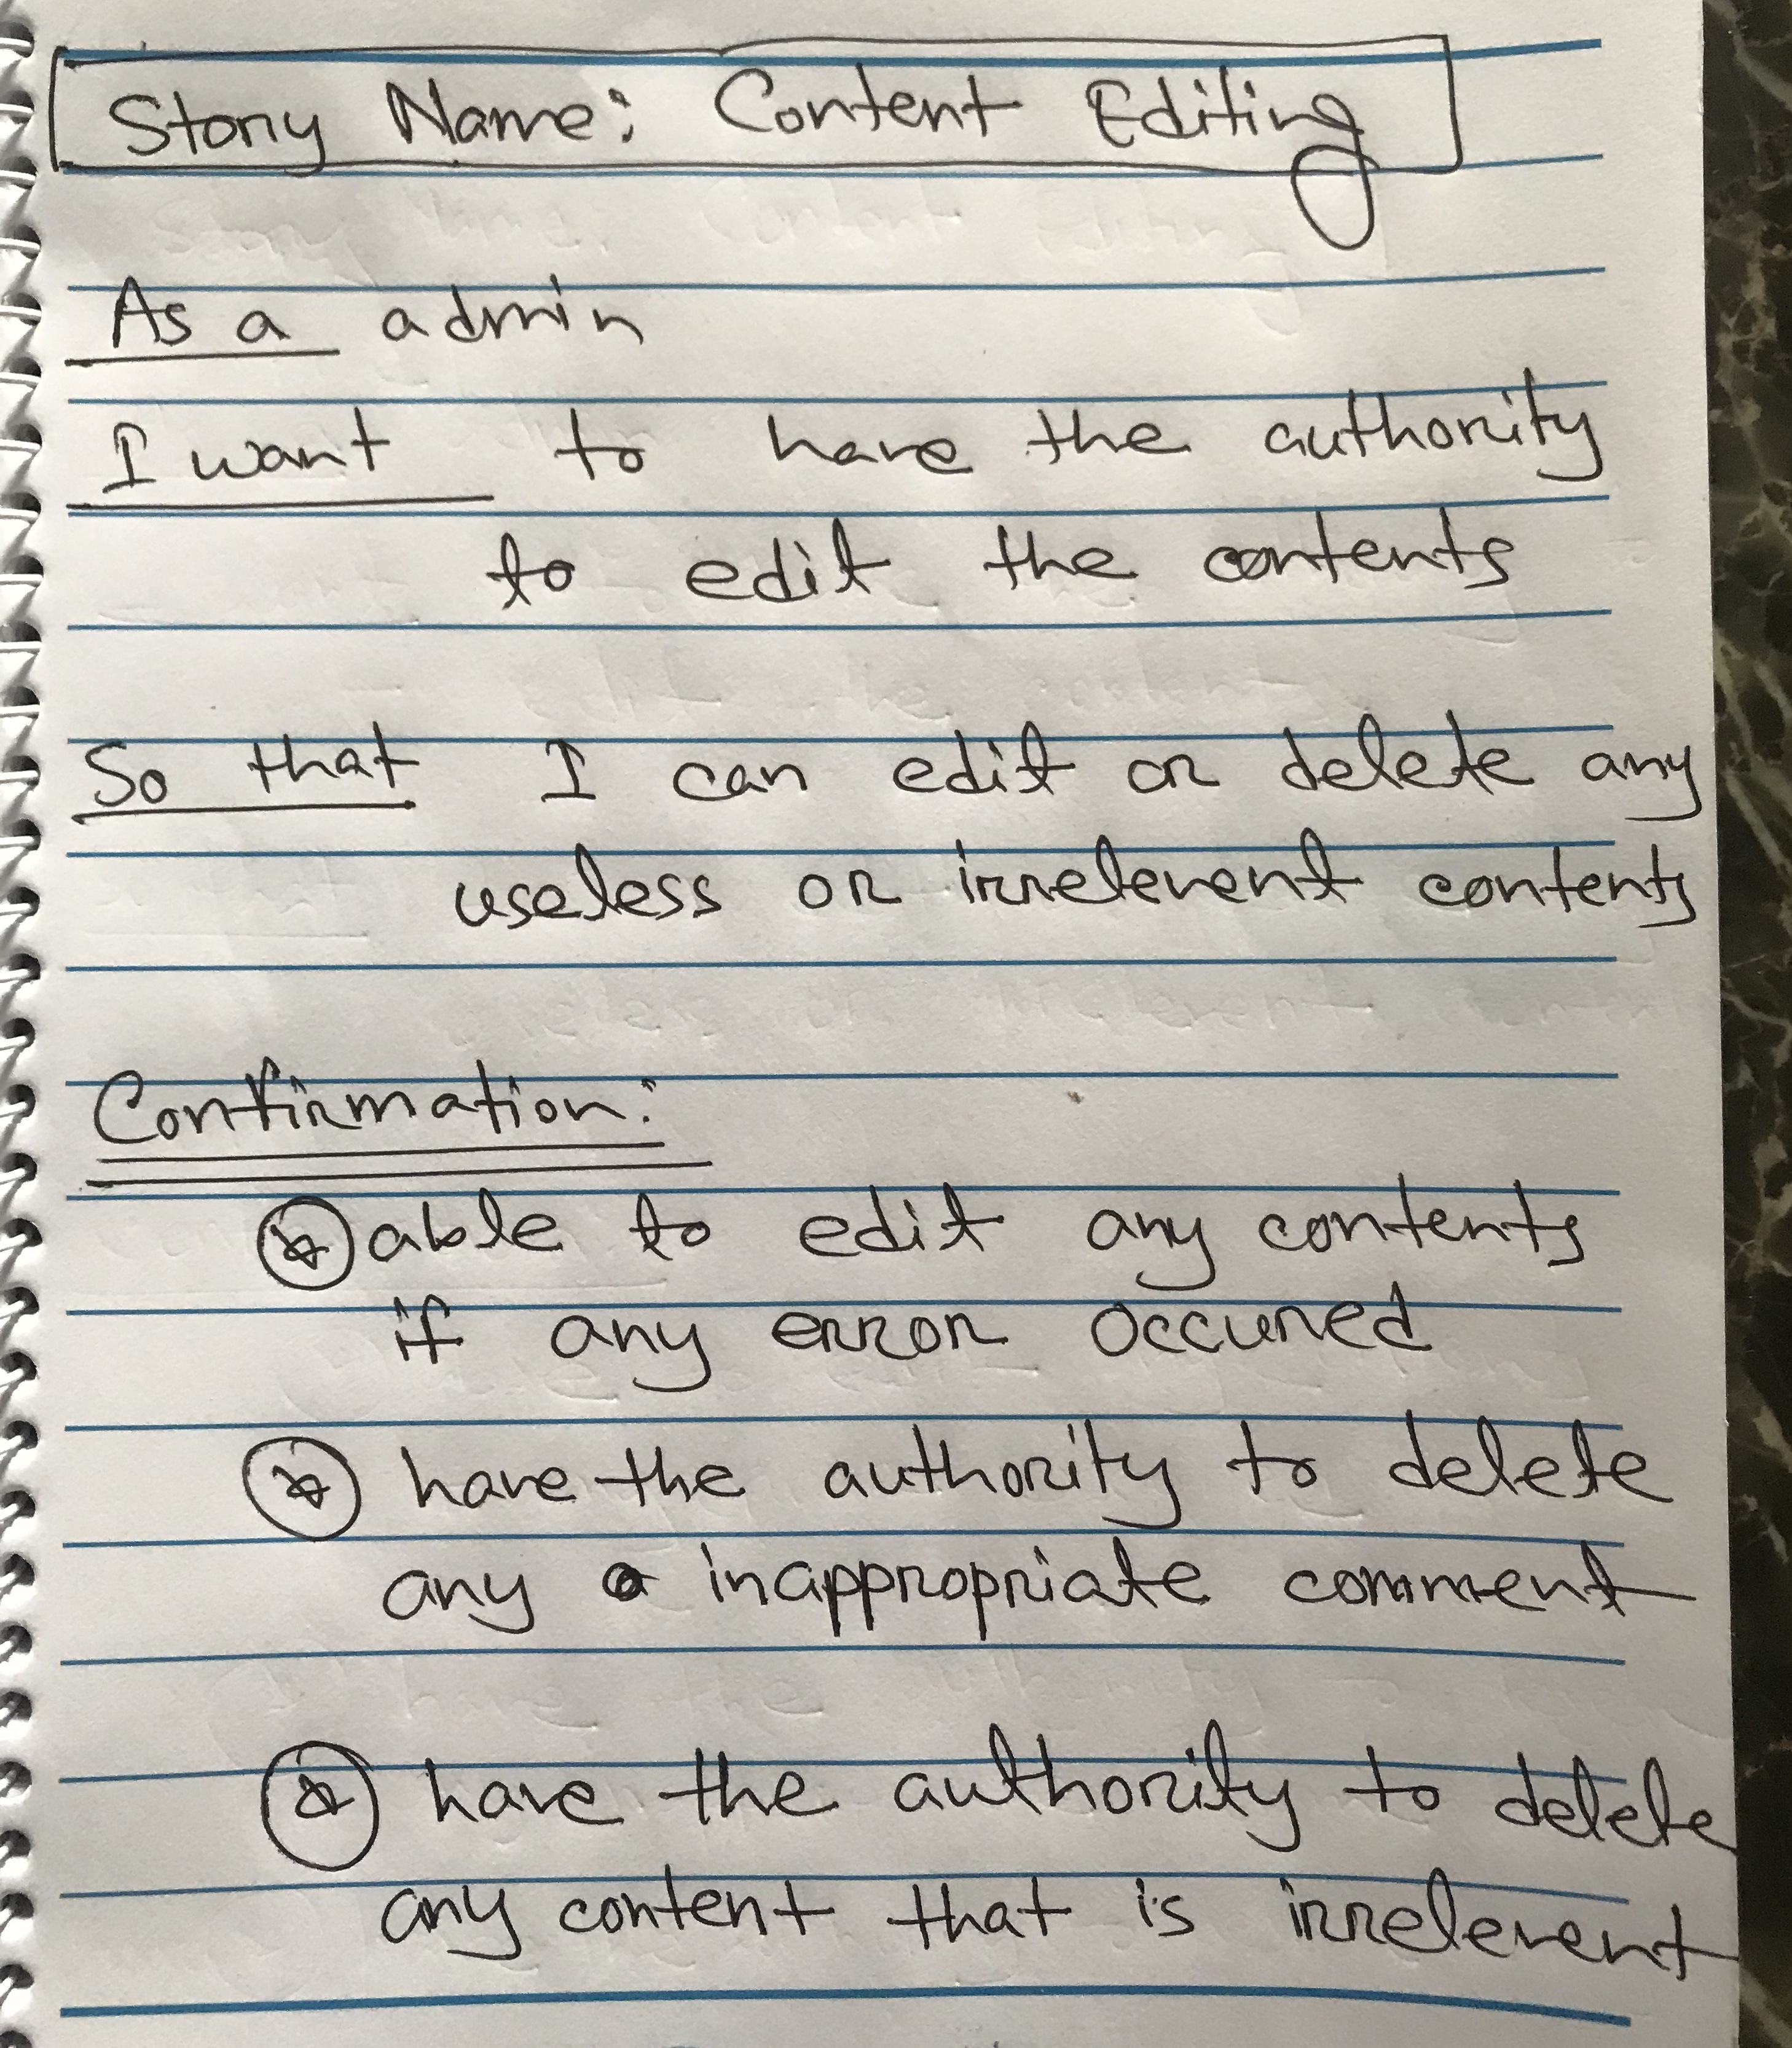 Story Name: Content Editing
As a admin
I want to have the authority
to edit the contents
So that I can edit or delete any
useless or irrelevent contents
Confirmation:
able to edit any contents
if any error occured
have the authority to delete
any inappropriate comment
have the authority to delete
any content that is irrelevent